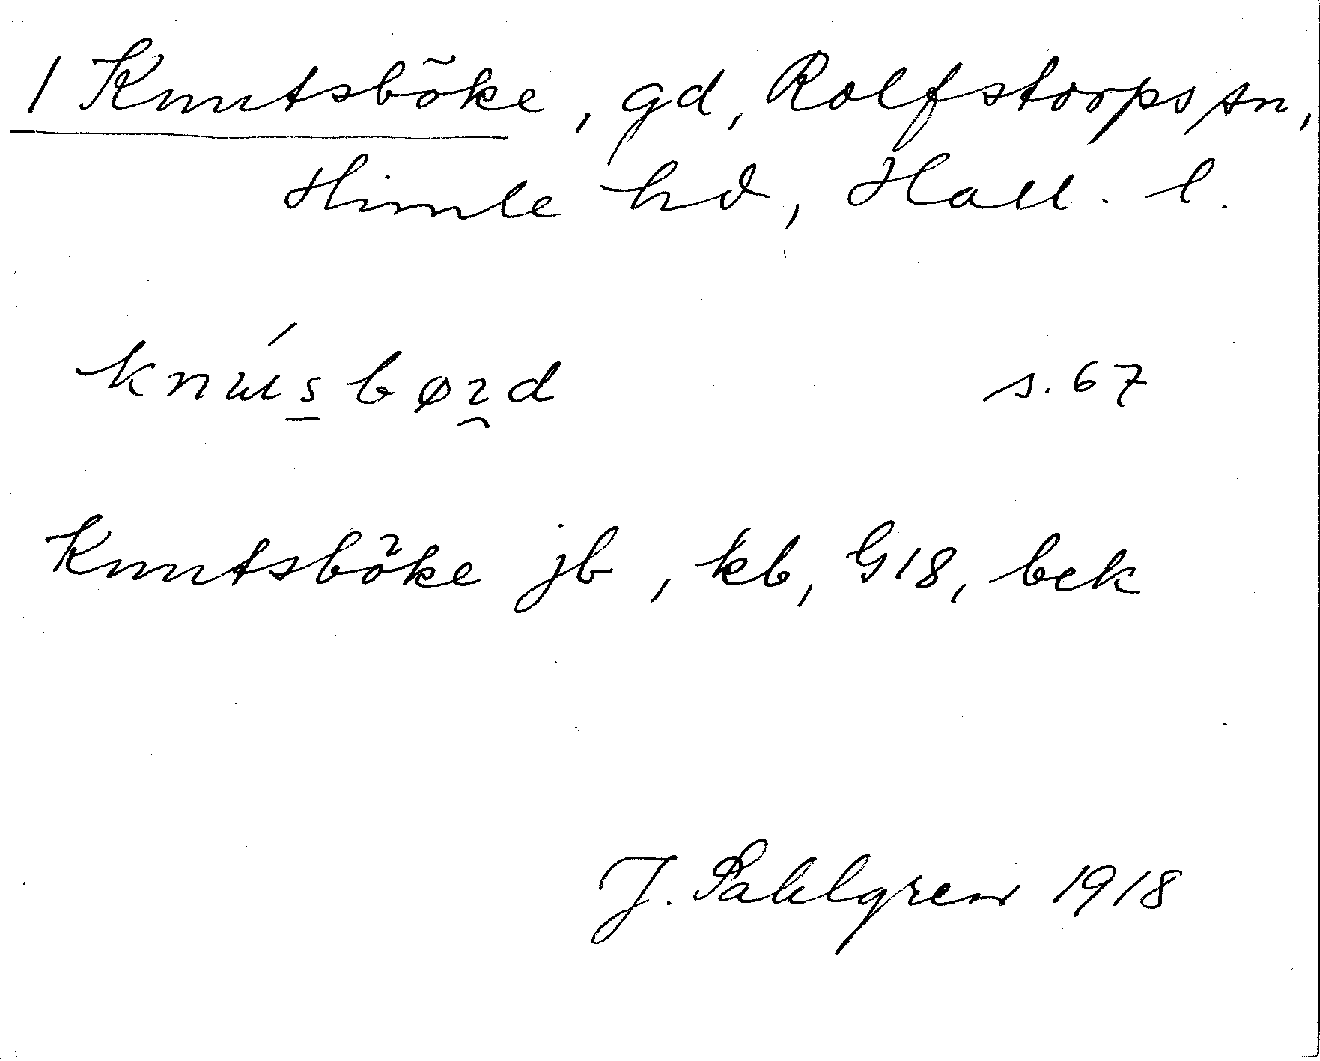 1 Knutsböke, gd, Rolfstorps sn,
Himle hd, Hall. l.
knúsbørd s. 67
Knutsböke jb, kb, G18, bek
J. Sahlgren 1918